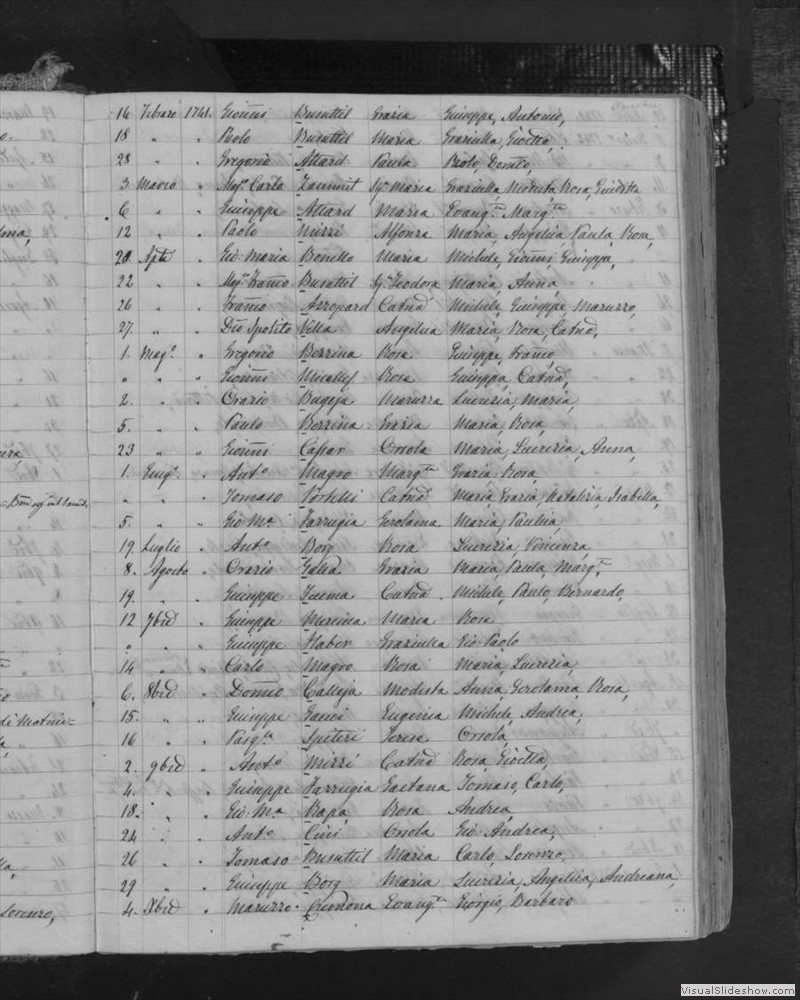 16 Febraro 1741. Gionni Busuttil Grazia Giuseppe, Antonio,
18 " " Paolo Busuttil Maria Graziulla, Gioetta,
28 " " Gregorio Attard Paula Paolo,
3 Marzo " Mg.r Carlo Zammit Sg.a Maria Graziulla, Modesta, Rosa, Giuditta
6 " " Giuseppe Attard Maria Evang.ta Marg.ta
12 " " Paolo Mizzi Alfonza Maria, Angelica, Paula, Rosa,
20. Aple " Gio: Maria Bonello Maria Michele, Gionni, Giuseppa,
22 " " Mg.r Franco Busuttil Sg.a Teodora Maria, Anna,
26 " " Franco Azzopard Catnd Michele, Giuseppe, Maruzzo,
27. " " Dto Spolito Vella Angelica Maria, Rosa, Catnd,
1. Mag.o " Gregorio Bezzina Rosa Giuseppe, Franco,
" " " Gionni Micallef Rosa Giuseppa, Catnd,
2. " " Orazio Bugeja Maruzza Lucrezia, Maria,
5. " " Paulo Bezzina Grazia Maria, Rosa,
23 " " Gionni Caspar Orsola Maria, Lucrezia, Anna,
1. Giug.o " Ant.o Magro Marg.ta Grazia, Rosa,
" " " Tomaso Portelli Catnd Maria, Grazia, Natalizia, Isabella,
5. " " Gio: M.a Farrugia Gerolama Maria, Paulica,
19. Luglio " Ant.o Borg Rosa Lucrezia, Vincenza,
8. Agosto " Orazio Galea Grazia Maria, Paula, Marg.ta
19. " " Giuseppe Catnd. Michele, Paulo, Bernardo,
12 7bre " Giuseppe Maria Rosa
" " " Giuseppe Haber Graziulla Gio: Paolo
14 " " Carlo Magro Rosa Maria, Lucrezia,
6. 8bre " Domco Calleja Modesta Anna, Gerolama, Rosa,
15. " " Giuseppe Gauci Eugenia Michele, Andrea,
16 " " Pasq.le Spiteri Terese Orsola
2. 9bre " Ant.o Mizzi Catnd Rosa, Gioetta,
4. " " Giuseppe Farrugia Gaetana Tomaso, Carlo,
18. " " Gio: M.a Rapa Rosa Andrea
24 " " Ant.o Cini Orsola Gio: Andrea,
26 " " Tomaso Busuttil Maria Carlo, Lorenzo,
29 " " Giuseppe Borg Maria Lucrezia, Angelica, Andreana,
4. Xbre " Maruzzo Cremona Evang.ta Giorgio, Barbaro
Lorenzo,
VisualSlideshow.com